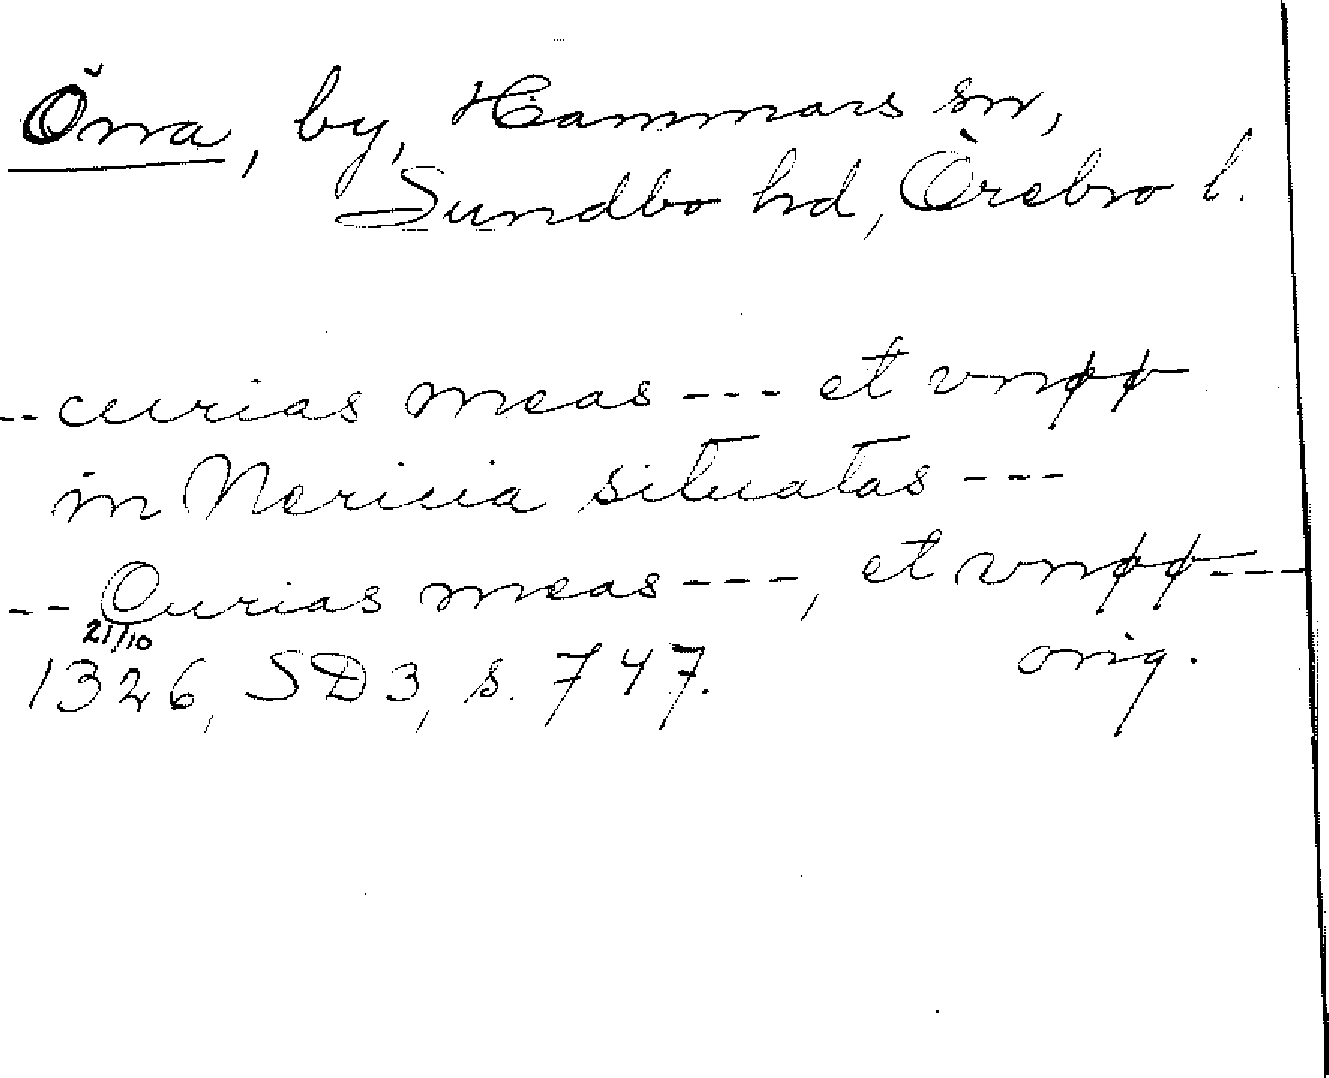 Önna, by, Hammars sn,
Sundbo hd, Örebro l.
-- curias meas --- et vnøø
in Nericia situatas ---
-- Curias meas ---, et vnøø ---
21/10
1326, SD3, s. 747. orig.